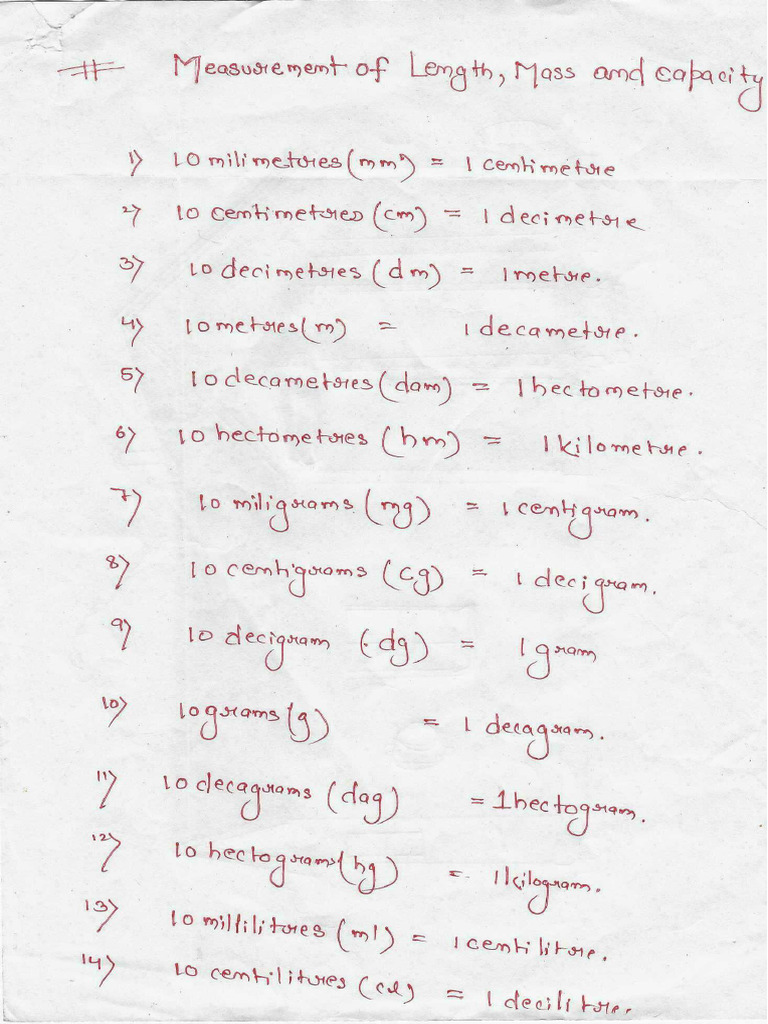 # Measurement of Length, Mass and capacity
1) 10 milimetres (mm) = 1 centimetre
2) 10 centimetres (cm) = 1 decimetre
3) 10 decimetres (dm) = 1 metre.
4) 10 metres (m) = 1 decametre.
5) 10 decametres (dam) = 1 hectometre.
6) 10 hectometres (hm) = 1 kilometre.
7) 10 miligrams (mg) = 1 centigram.
8) 10 centigrams (cg) = 1 decigram.
9) 10 decigram (dg) = 1 gram
10) 10 grams (g) = 1 decagram.
11) 10 decagrams (dag) = 1 hectogram.
12) 10 hectograms (hg) = 1 kilogram.
13) 10 millilitres (ml) = 1 centilitre.
14) 10 centilitres (cl) = 1 decilitre.